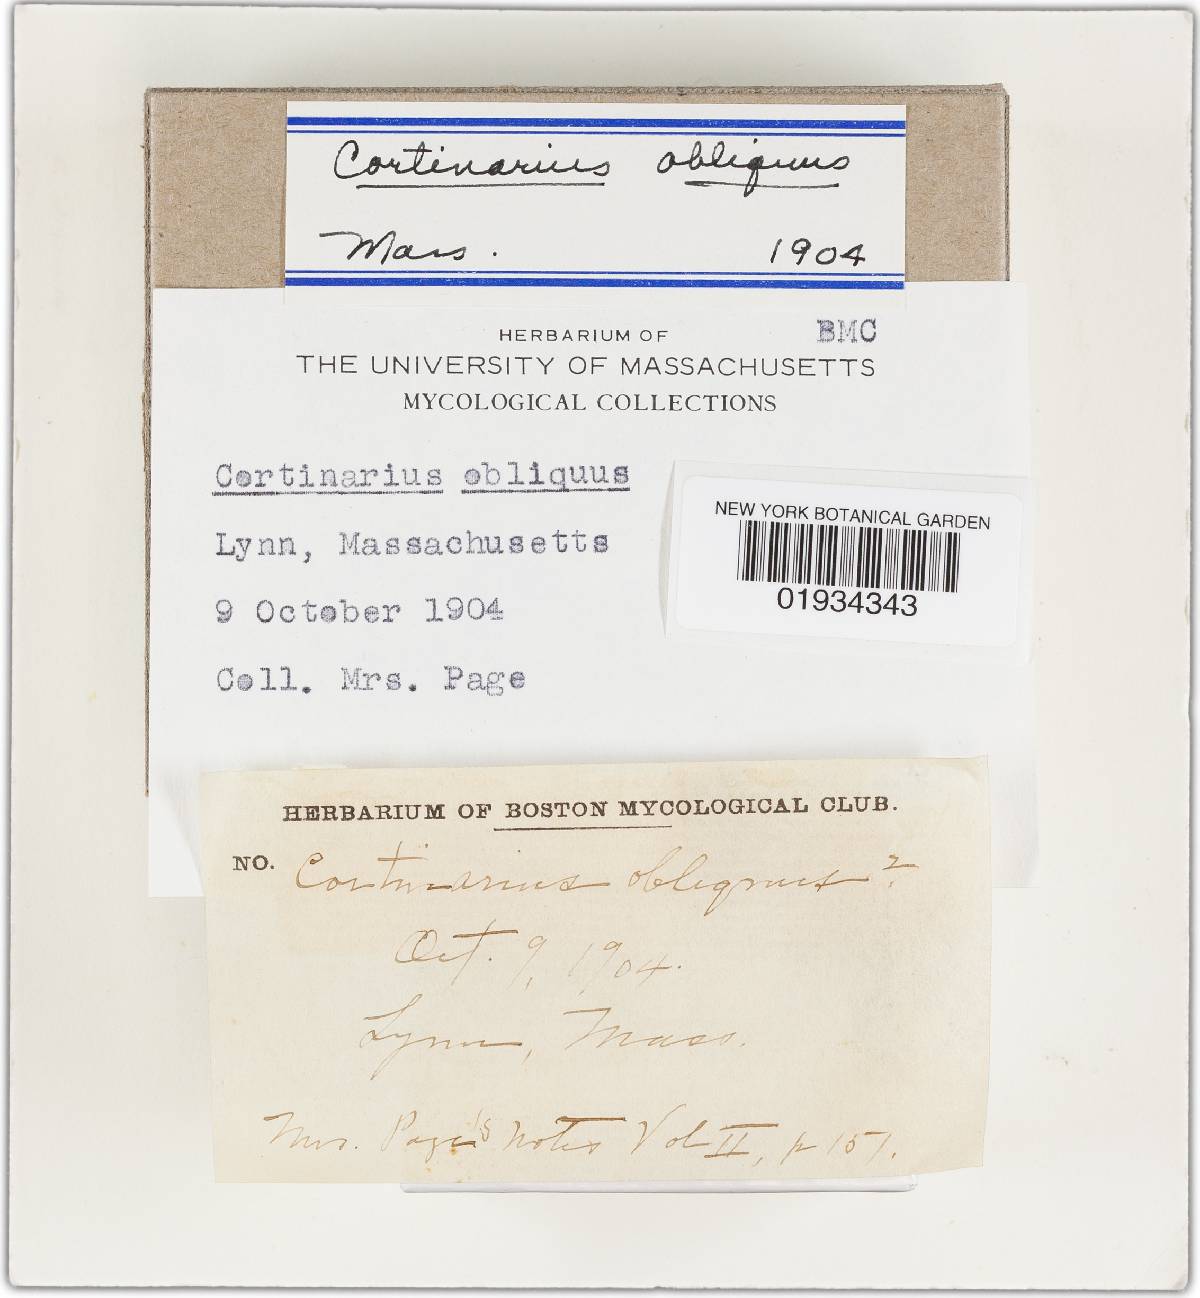 Cortinarius obliquus
Mass. 1904
HERBARIUM OF BMC
THE UNIVERSITY OF MASSACHUSETTS
MYCOLOGICAL COLLECTIONS
Cortinarius obliquus
Lynn, Massachusetts
9 October 1904
Coll. Mrs. Page
NEW YORK BOTANICAL GARDEN
01934343
HERBARIUM OF BOSTON MYCOLOGICAL CLUB.
NO. Cortinarius obliquus?
Oct. 9, 1904.
Lynn, Mass.
Mrs. Page's notes Vol II, p 151.